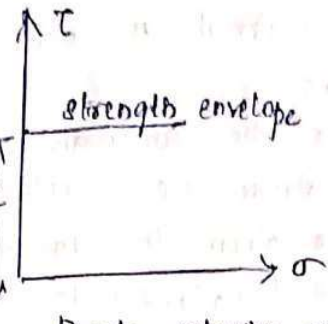 τ
strength envelope
σ